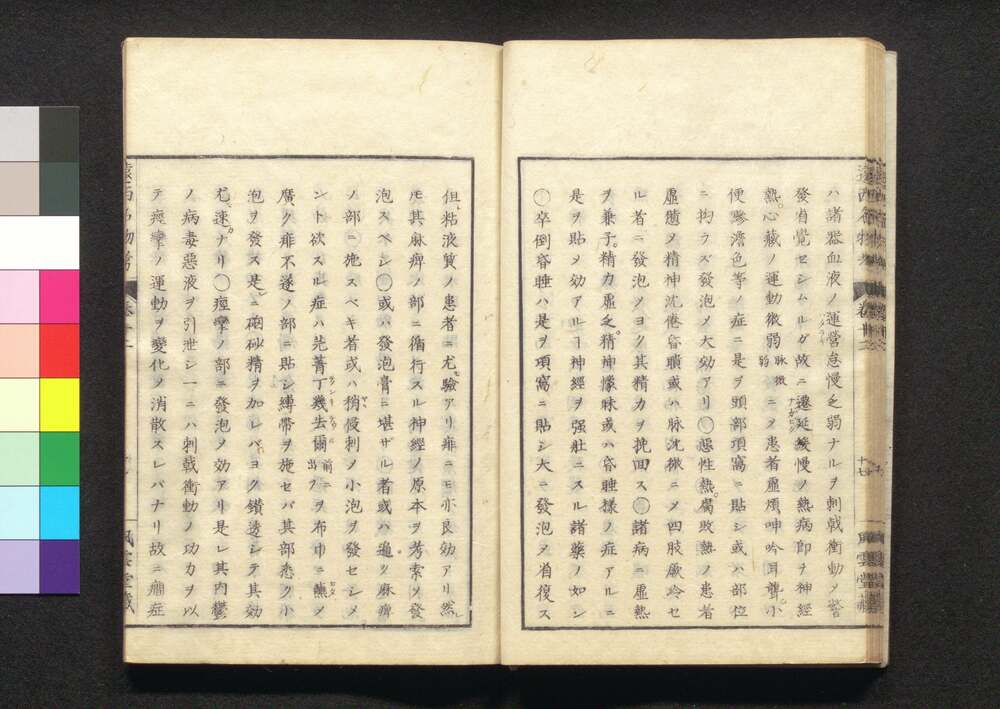 ハ諸器血液ノ運營怠慢乏弱ナルヲ刺戟衝動メ蓄
發自覺セシムルガ故ニ遷延緩慢ノ熱病即チ神經
熱心藏ノ運動微弱脉微弱ニメ患者虛煩呻吟耳聾小
便慘澹色等ノ症ニ是ヲ頭部項窩ニ貼シ或ハ部位
ニ拘ラズ發泡メ大効アリ〇惡性熱腐敗熱ノ患者
虛憊メ精神沈倦昏瞶或ハ脉沈微ニメ四肢厥冷セ
ル者ニ發泡メヨク其精力ヲ挽回ス〇諸病ニ虛熱
ヲ兼子精力虛乏精神懞昧或ハ昏睡様ノ症アルニ
是ヲ貼メ効アルヿ神經ヲ强壯ニスル諸藥ノ如シ
〇卒倒昏睡ハ是ヲ項窩ニ貼シ大ニ發泡メ甦復ス
十七
風雲堂藏
但粘液質ノ患者ニ尤驗アリ痱ニモ亦良効アリ然
モ其麻痹ノ部ニ循行スル神經ノ原本ヲ考索メ發
泡スベシ〇或ハ發泡膏ニ堪ザル者或ハ遍ク麻痹
ノ部ニ施スベキ者或ハ稍侵刺メ小泡ヲ發セシメ
ント欲スル症ハ芫菁丁幾去爾前ニ出ヲ布巾ニ蘸メ
廣ク痱不遂ノ部ニ貼シ縛帶ヲ施セバ其部悉ク小
泡ヲ發ス是ニ磠砂精ヲ加レバヨク鑽透シテ其効
尤速ナリ〇痙攣ノ部ニ發泡メ効アリ是レ其内鬱
ノ病毒惡液ヲ引泄シ一ニハ刺戟衝動ノ功力ヲ以
テ痙攣ノ運動ヲ變化メ消散スレバナリ故ニ癇症